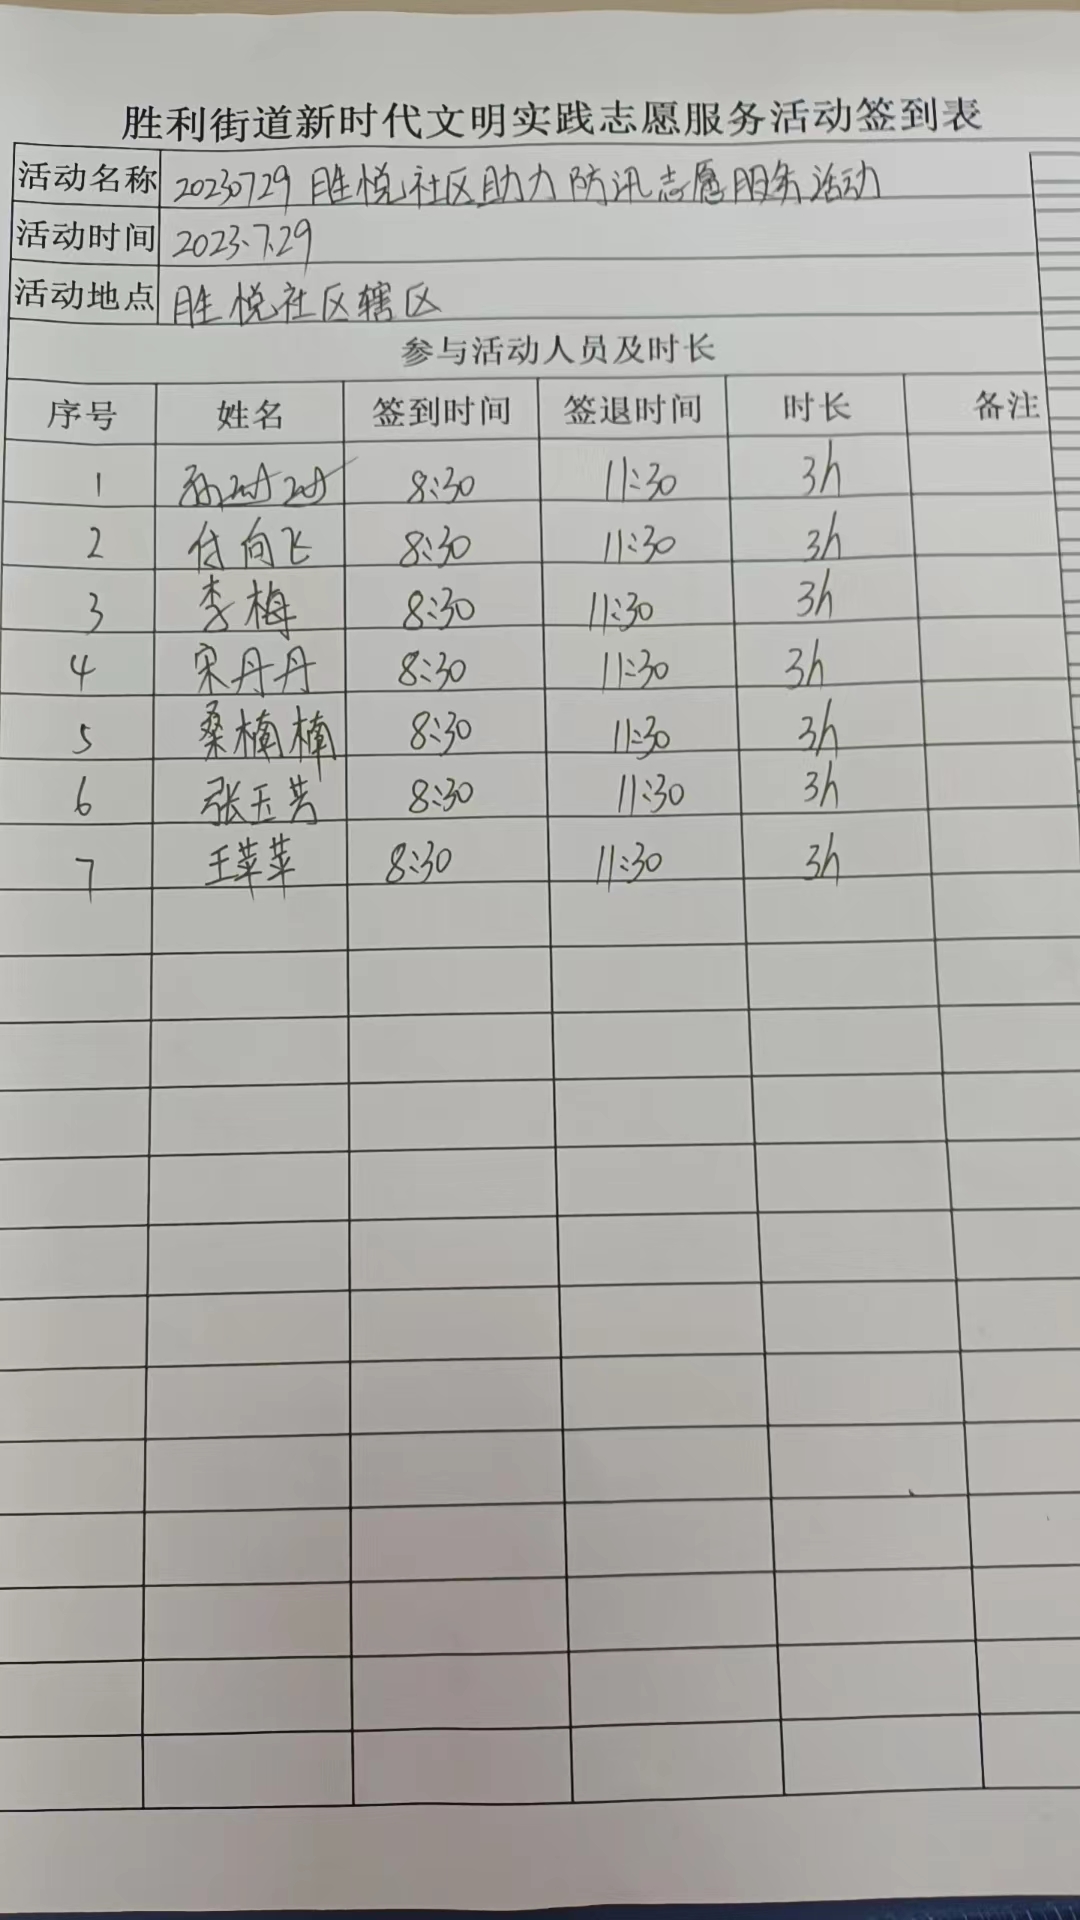 胜利街道新时代文明实践志愿服务活动签到表
活动名称 20230729 胜悦社区助力防汛志愿服务活动
活动时间 2023.7.29
活动地点 胜悦社区辖区
参与活动人员及时长
序号 姓名 签到时间 签退时间 时长 备注
1 8:30 11:30 3h
2 付向飞 8:30 11:30 3h
3 李梅 8:30 11:30 3h
4 宋丹丹 8:30 11:30 3h
5 桑楠楠 8:30 11:30 3h
6 张玉芳 8:30 11:30 3h
7 王苹苹 8:30 11:30 3h